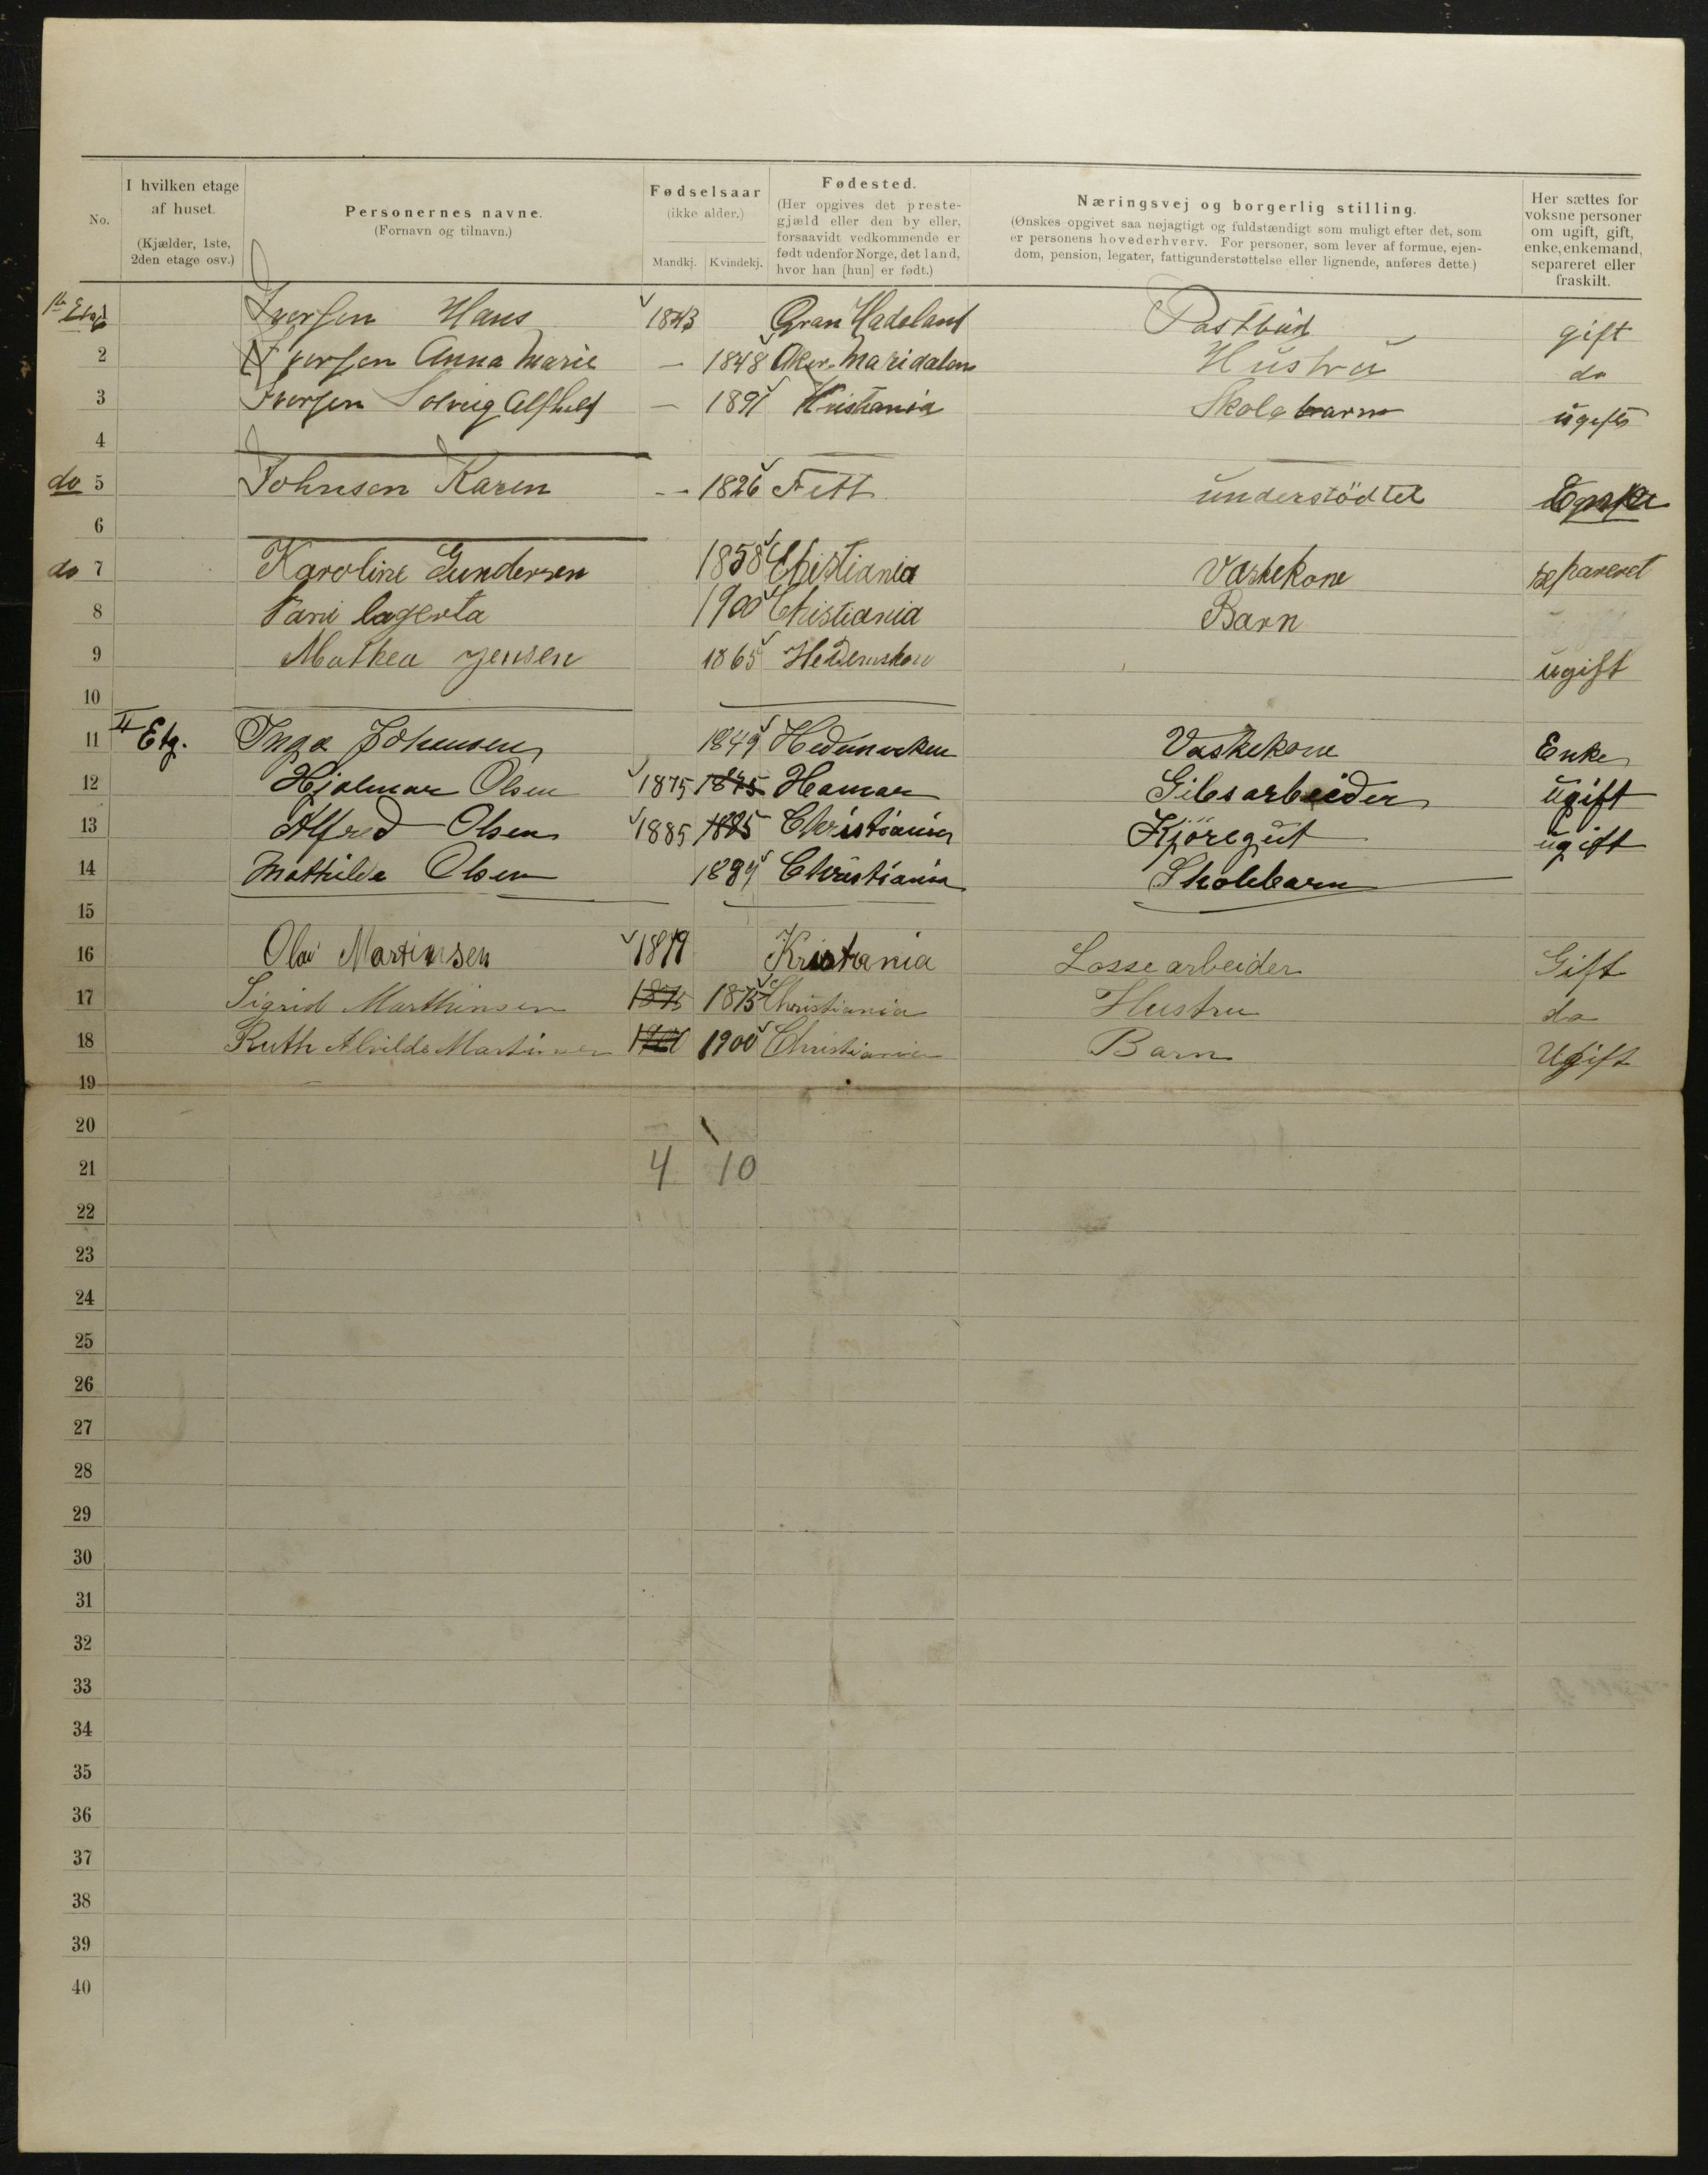 No.
I hvilken etage af huset. (Kjælder, 1ste, 2den etage osv.)
Personernes navne. (Fornavn og tilnavn.)
Fødselsaar (ikke alder.) Mandkj. Kvindekj.
Fødested. (Her opgives det prestegjæld eller den by eller, forsaavidt vedkommende er født udenfor Norge, det land, hvor han [hun] er født.)
Næringsvej og borgerlig stilling. (Ønskes opgivet saa nøjagtigt og fuldstændigt som muligt efter det, som er personens hovederhverv. For personer, som lever af formue, ejendom, pension, legater, fattigunderstøttelse eller lignende, anføres dette.)
Her sættes for voksne personer om ugift, gift, enke, enkemand, separeret eller fraskilt.
Iversen Hans 1843 Gran Hadeland Postbud gift
2 Iversen Anna Marie — 1848 Aker Maridalen Hustru do
3 Iversen Solveig Alfhild — 1891 Kristiania Skolebarn ugift
4
do 5 Johnsen Karen -- 1826 Fett understödtet Enke
6
do 7 Karoline Gundersen 1858 Christiania Vaskekone separeret
8 lagerta 1900 Christiania Barn
9 Mathea Jensen 1865 ugift
10
11 II Etg. Inga Johnsen 1849 Hedemarken Vaskekone Enke
12 Hjalmar Olsen 1875 1875 Hamar Gibsarbeider ugift
13 Alfred Olsen 1885 1885 Christiania Kjöregut ugift
14 Mathilde Olsen 1889 Christiania Skolebarn
15
16 Olav Martinsen 1879 Kristiania Lossearbeider Gift
17 Sigrid Marthinsen 1875 1875 Christiania Hustru do
18 Ruth Alvilda Martinsen 1900 1900 Christiania Barn Ugift
19
20
21 4 10
22
23
24
25
26
27
28
29
30
31
32
33
34
35
36
37
38
39
40